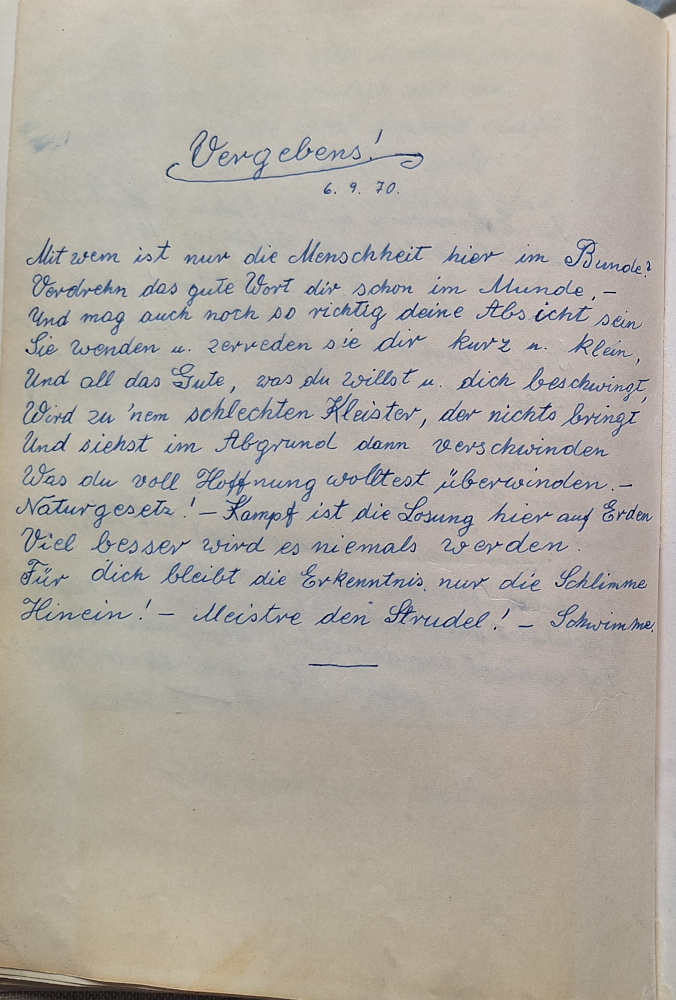 Vergebens!
6. 9. 70.
Mit wem ist nur die Menschheit hier im Bunde?
Verdrehn das gute Wort dir schon im Munde, –
Und mag auch noch so richtig deine Absicht sein
Sie wenden u. zerreden sie dir kurz u. klein,
Und all das Gute, was du willst u. dich beschwingt,
Wird zu 'nem schlechten Kleister, der nichts bringt
Und siehst im Abgrund dann verschwinden
Was du voll Hoffnung wolltest überwinden. –
Naturgesetz! – Kampf ist die Losung hier auf Erden
Viel besser wird es niemals werden.
Für dich bleibt die Erkenntnis nur die Schlimme
Hinein! – Meistre den Strudel! – Schwimme.